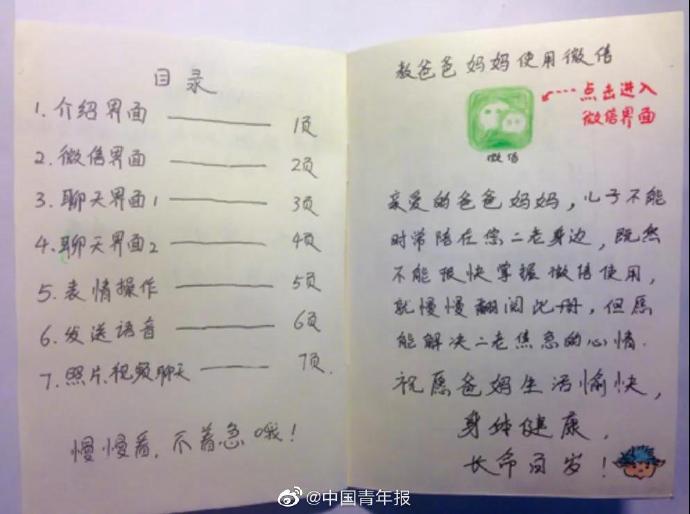 目录
1. 介绍界面 —— 1页
2. 微信界面 —— 2页
3. 聊天界面1 —— 3页
4. 聊天界面2 —— 4页
5. 表情操作 —— 5页
6. 发送语音 —— 6页
7. 照片,视频聊天 —— 7页.
慢慢看,不着急哦!
教爸爸妈妈使用微信
点击进入
微信界面
微信
亲爱的爸爸妈妈,儿子不能
时常陪在您二老身边,既然
不能很快掌握微信使用,
就慢慢翻阅此册,但愿
能解决二老焦急的心情.
祝愿爸妈生活愉快,
身体健康,
长命百岁!
@中国青年报